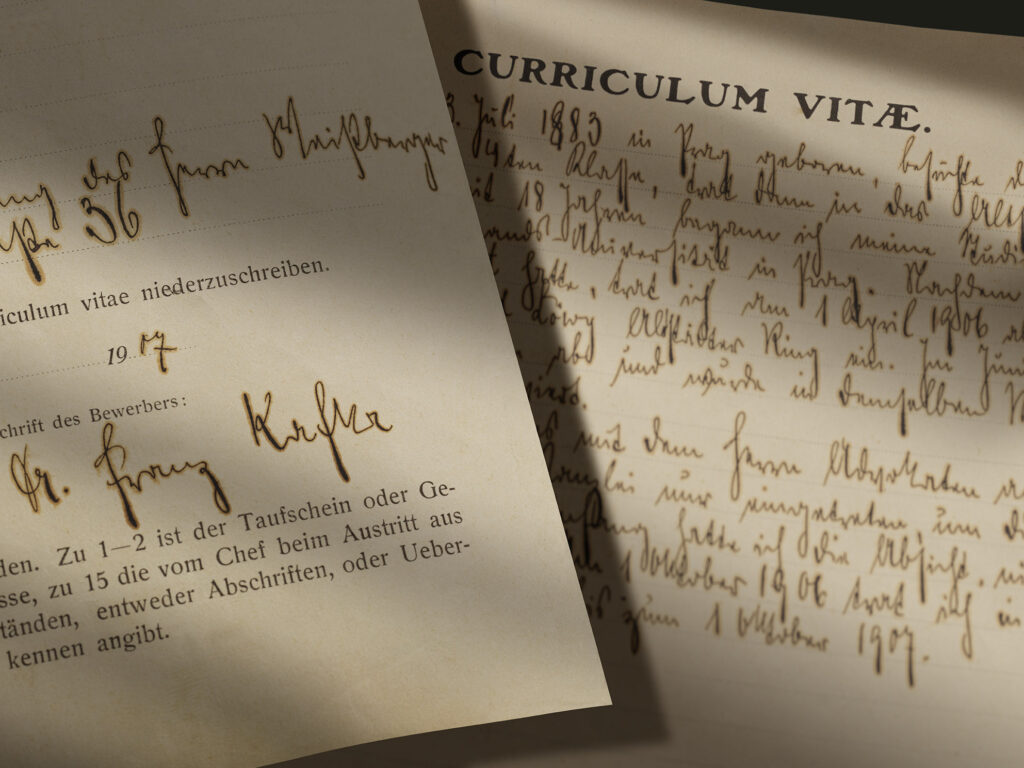 des Herrn Weißberger
36
riculum vitae niederzuschreiben.
1907
schrift des Bewerbers:
Dr. Franz Kafka
den. Zu 1—2 ist der Taufschein oder Ge-
sse, zu 15 die vom Chef beim Austritt aus
tänden, entweder Abschriften, oder Ueber-
kennen angibt.
CURRICULUM VITÆ.
3. Juli 1883 in Prag geboren, besuchte d
4ten Klasse, trat dann in das
it 18 Jahren begann ich meine Studi
ands-Universität in Prag. Nachdem
hatte, trat ich am 1 April 1906
Löwy Altstädter Ring ein. Im Jun
ab und wurde in demselben
mit dem Herrn Advokaten
nur eingetreten, um d
hatte ich die Absicht,
1 Oktober 1906 trat ich in
bis zum 1 Oktober 1907.